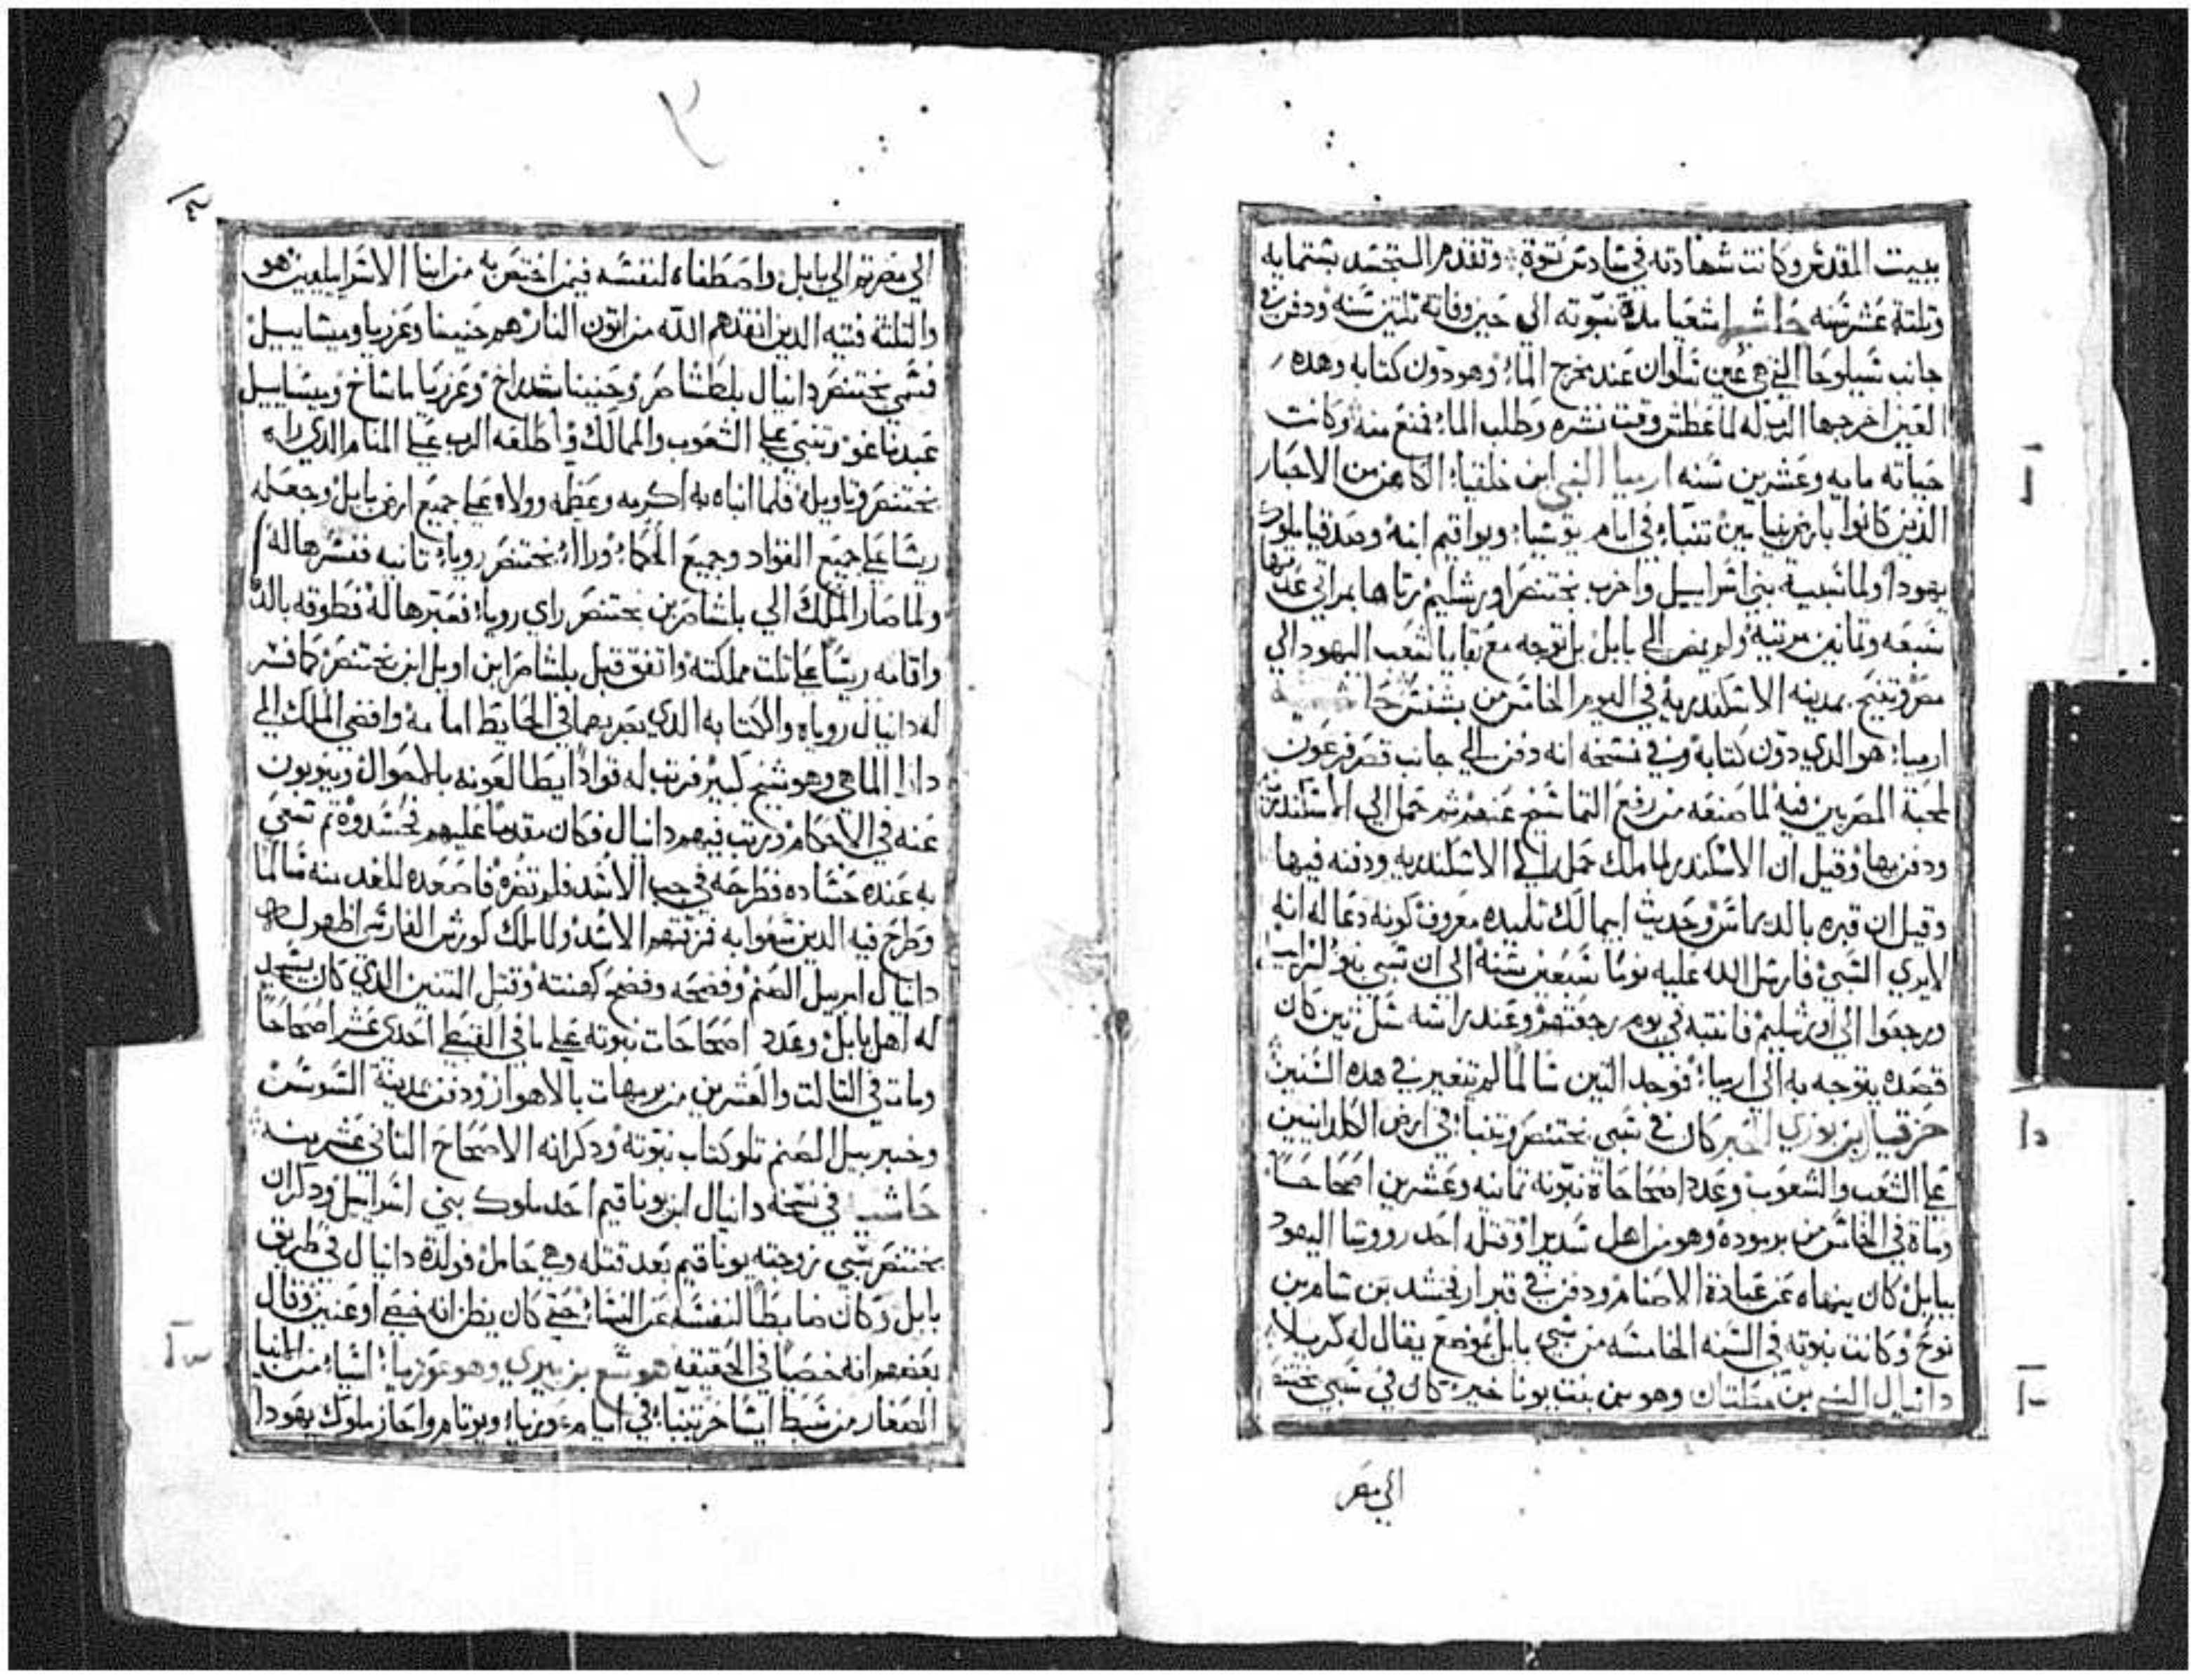 ببيت المقدس وكانت شهادته في سادس توت وتقدم المتجسد بستمايه
وتلتة عشر سنه اشعيا مدة نبوته الي حين وفاته تلتين سنه ودفن في
جانب شيلوحا التي هي عين سلوان عند مخرج الماء وهو دون كتابه وهده
العين اخرجها الرب له لما عطش وقت نشره وطلب الماء فمنع منه وكانت
حياته مايه وعشرين سنه ارميا النبي ابن خلقيا الكاهن من الاحبار
الذين كانوا بارض بنيامين تنبا في ايام يوشيا ويواقيم ابنه وصدقيا ملوك
يهودا ولما سبية بني اسراييل واخرب بختنصر اورشليم رتاها بمراتي عدتها
سبعه وتمانين مرتية ولم يمض الي بابل بل توجه مع بقايا شعب اليهود الي
مصر وتنيح بمدينه الاسكندرية في اليوم الخامس من بشنس
ارميا هو الدي دون كتابه وفي نسخه انه دفن الي جانب قصر فرعون
لمحبة المصريين فيه لما صنعه من رفع التماسيح عنهم ثم حمل الي الاسكندرية
ودفن بها وقيل ان الاسكندر لما ملك حمله الي الاسكندريه ودفنه فيها
وقيل ان قبره بالديماس وحديث ابيمالك تلميده معروف كونه دعا له انه
لايري السبي فارسل الله عليه نوما سبعين سنة الي ان سبي بنو اسراييل
ورجعوا الي اورشليم فانتبه في يوم رجعتهم وعند راسه سل تين كان
قصده يتوجه به الي ارميا فوجد التين سالما لم يتغير في هده السنين
حزقيال بن بوزي الحبر كان في سبي بختنصر وتنبا في ارض الكلدانيين
علي الشعب والشعوب وعدد اصحاحاة نبوته تمانيه وعشرين اصحاحا
وماة في الخامس من برموده وهو من اهل وقتله احد رووسا اليهود
ببابل كان ينهاه عن عبادة الاصنام ودفن في قبر ارفخشد بن سام بن
نوح وكانت نبوته في السنه الخامسه من سبي بابل بموضع يقال له كربلا
دانيال النبي بن وهو من بنت يونا خير كان في سبي بختنصر
الي مصر
الي مصر تم الي بابل واصطفاه لنفسه فيمن اختص به من ابنا الاسراييليين هو
والتلتة فتيه الدين انقدهم الله من اتون النار هم حنينا وعزريا وميشاييل
فسمي بختنصر دانيال بلطشاصر وحنينا شدراخ وعزريا ماشاخ وميساييل
عبدناغو وتنبي علي الشعوب والممالك واطلعه الرب علي المنام الدي راه
بختنصر وتاويله فلما انباه به اكرمه وعظمه وولاه علي جميع ارض بابل وجعله
ريسا علي جميع القواد وجميع الحكما وراا بختنصر رويا تانيه ففسرها له
ولما صار الملك الي بلشاصر بن بختنصر راي رويا فعبرها له فطوقه بالدهب
واقامه ريسا علي تلت مملكته واتفق قتل بلشاصر ابن اويل ابن بختنصر كما فسر
له دانيال روياه والكتابه الدي بصر بهما في الحايط امامه وافضي الملك الي
دارا الماهي وهو شيخ كبير فرتب له قوادا يطالعونه بالاحوال وينوبون
عنه في الاحكام ورتب فيهم دانيال فكان مقدما عليهم فحسدوه تم سعي
به عنده حساده فطرحه في جب الاسد فلم تضره فاصعده للغد منه سالما
وطرح فيه الدين سعوا به فمزقتهم الاسد ولما ملك كورش الفارسي اظهر له
دانيال امر بيل الصنم وفضحه وفضح كهنته وقتل التنين الدي كان يسجد
له اهل بابل وعدد اصحاحات نبوته علي ما في القبطي احدي عشر اصحاحا
ومات في التالت والعشرين من برمهات بالاهواز ودفن بمدينة السوس
وخبر بيل الصنم تلو كتاب نبوته ودكر انه الاصحاح التاني عشر منه
حاشيه في نسخه دانيال ابن يوناقيم احد ملوك بني اسراييل ودكر ان
بختنصر سبي زوجته يوناقيم بعد قتله وهي حامل فولدة دانيال في طريق
بابل وكان ضابطا لنفسه عن النسا حتي كان يظن انه خصي او عنين وقال
بعضهم انه خصيا في الحقيقه هوشع بن بيري وهو عوزيا من
الصغار من سبط ايساخر تنبا في ايام عوزيا ويوتام واحاز ملوك يهودا